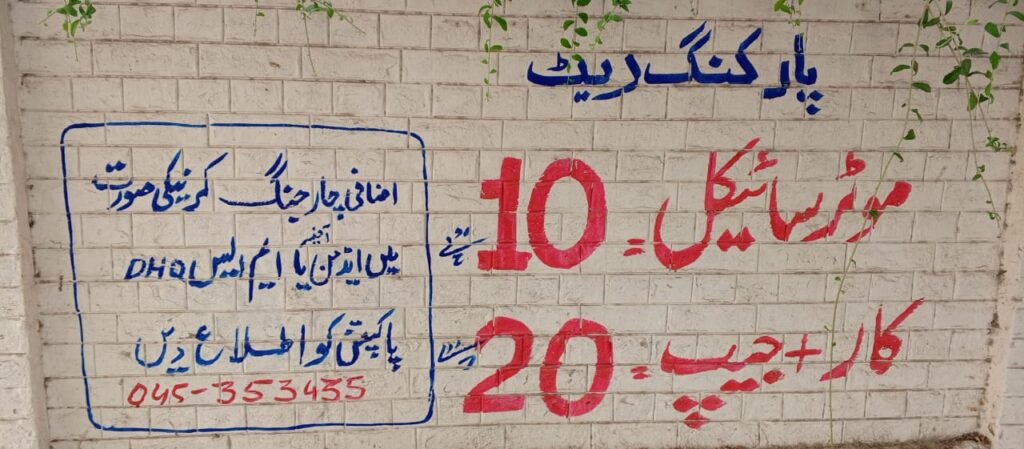 پارکنگ ریٹ
موٹر سائیکل = 10 روپے
کار + جیپ = 20 روپے
اضافی چارجنگ کرنیکی صورت
میں ایڈمن آفیسر یا ایم ایس DHQ
پاکپتن کو اطلاع دیں
045-353435